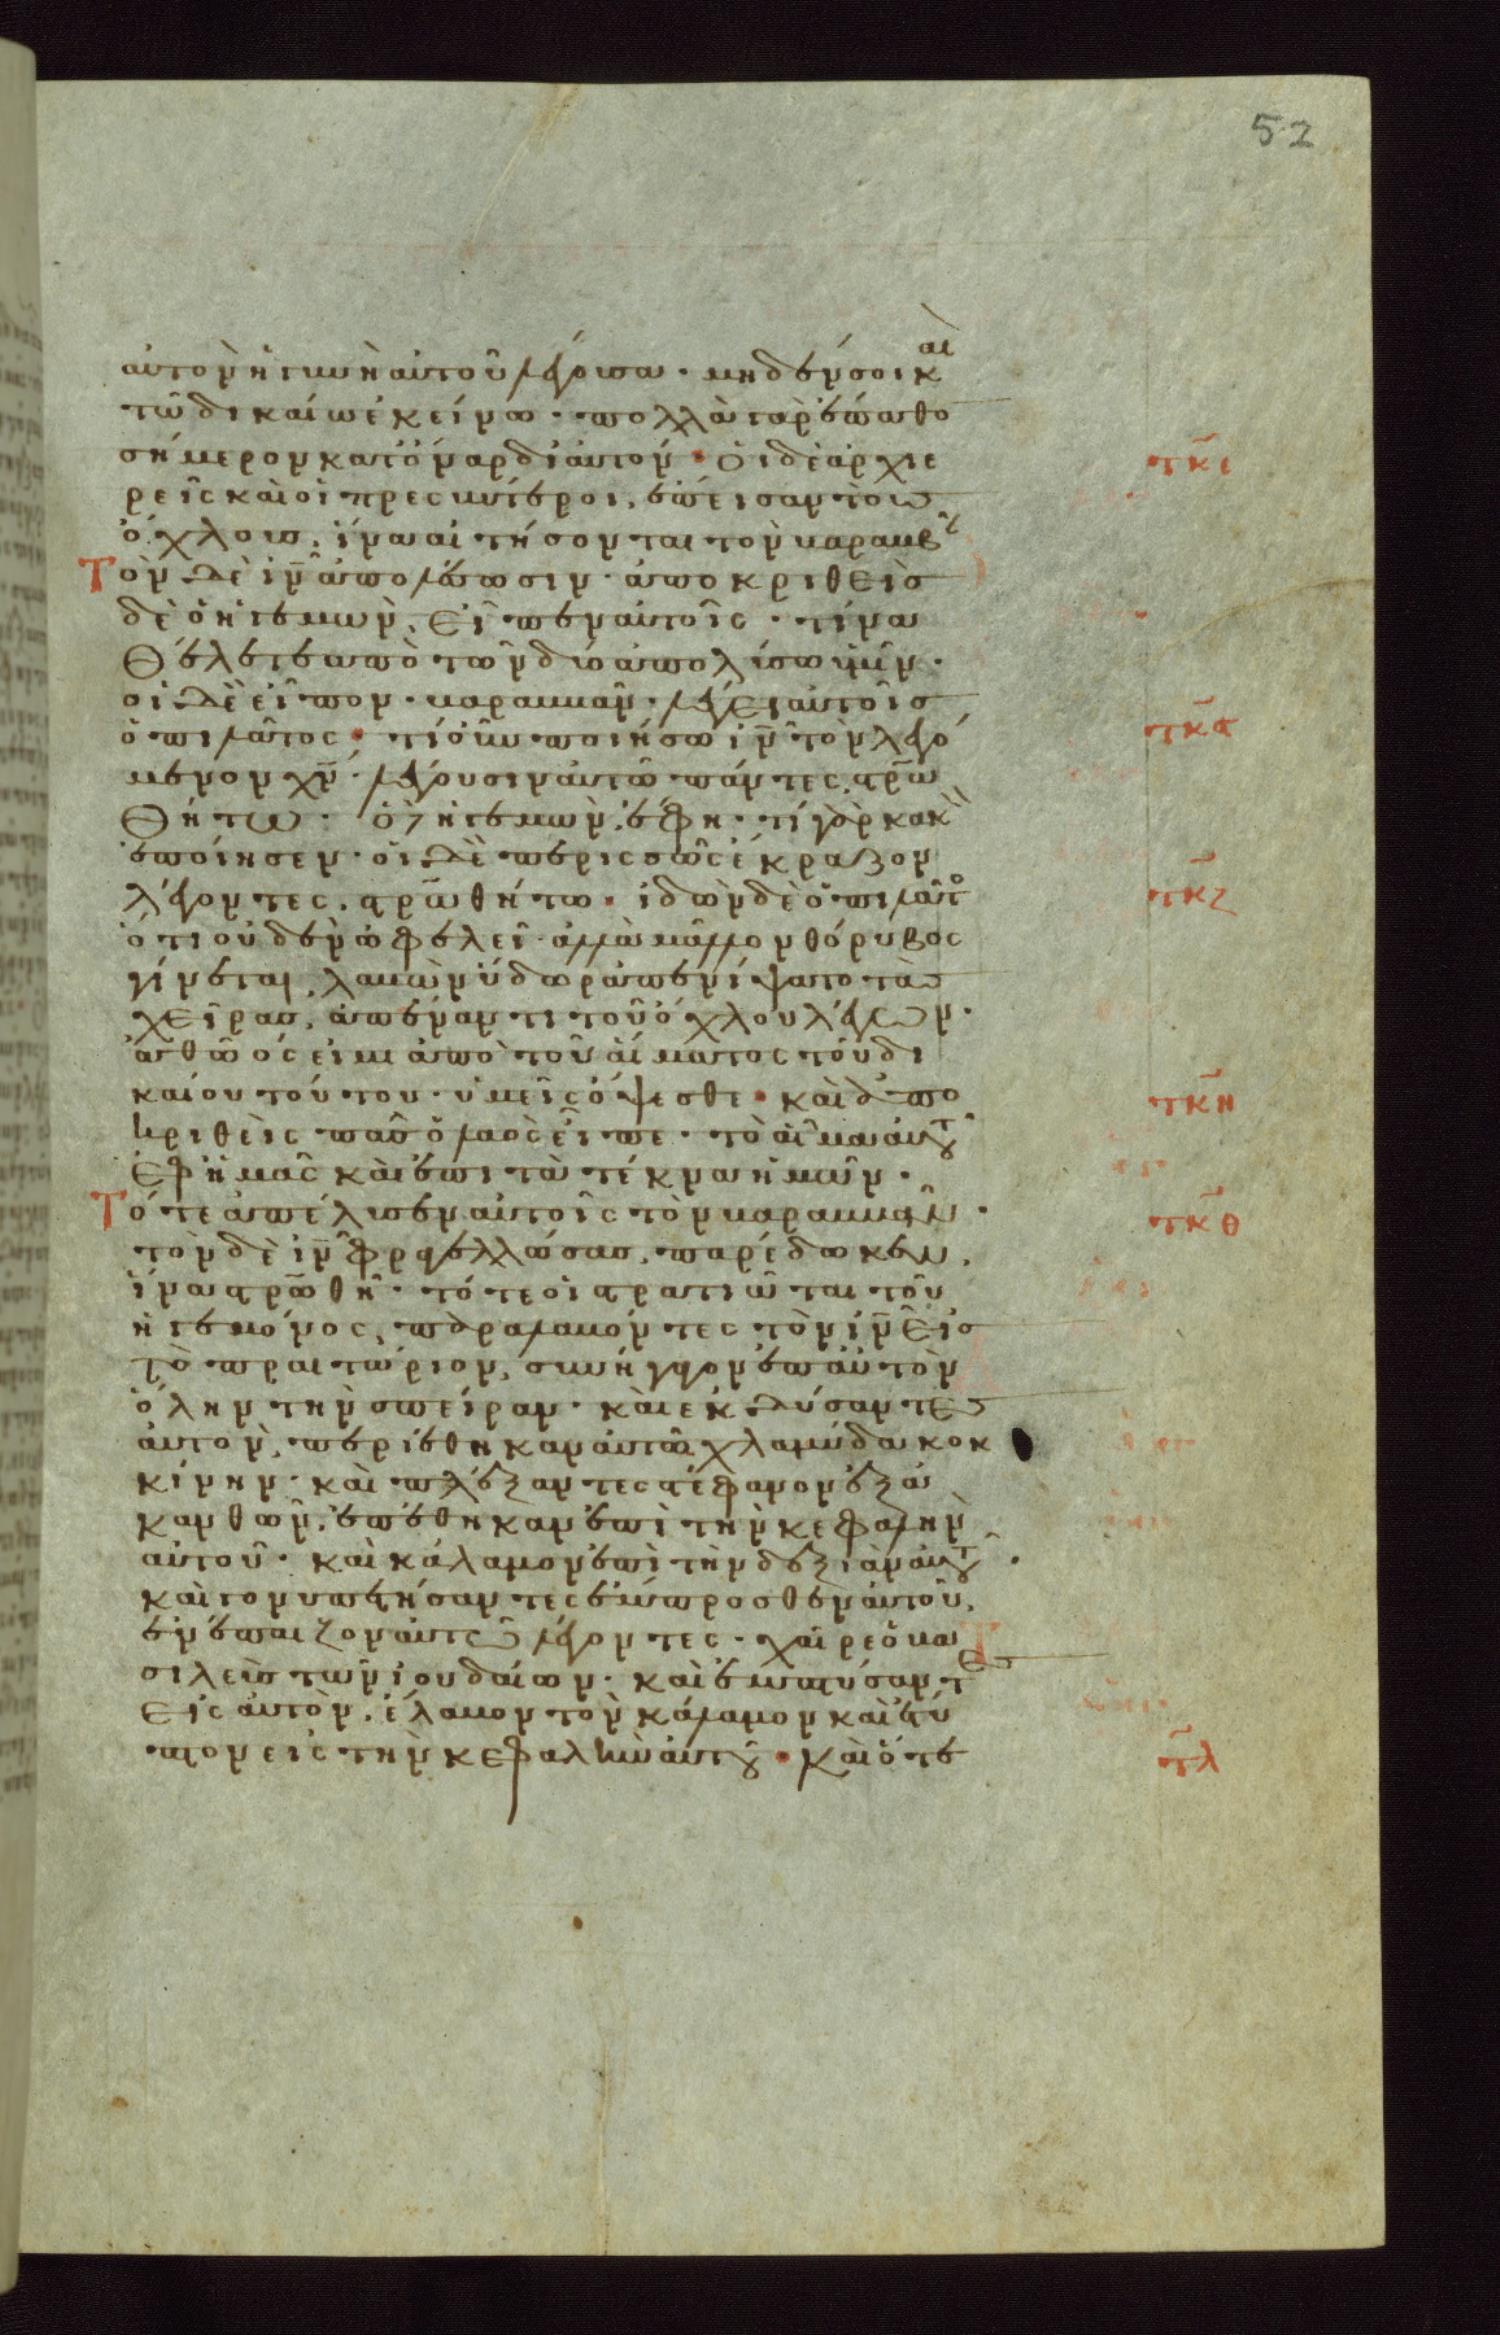 52
αὐτὸν ἡ γυνὴ αὐτοῦ λέγουσα · μηδέν σοι κ(αὶ)
τῶ δικαίω ἐκείνω · πολλὰ γὰρ ἔπαθο
σήμερον κατόναρ δι αὐτόν · οἱ δὲ ἀρχιε τκε
ρεῖς καὶ οἱ πρεσβύτεροι, ἔπεισαν τοὺσ
ὄχλους, ἵνα αἰτήσονται τὸν βαραββ
Τὸν δὲ ἰν̅ ἀπολέσωσιν · ἀποκριθεὶσ
δὲ ὁ ἡγεμὼν, εἶπεν αὐτοῖς · τίνα
θέλετε ἀπὸ τῶν δύο ἀπολύσω ὑμῖν ·
οἱ δὲ εἶπον · βαραββᾶν · λέγει αὐτοῖσ
ὁ πιλᾶτος · τί οὖν ποιήσω ἰν̅ τὸν λεγό τκϛ
μενον χν̅ · λέγουσιν αὐτῶ πάντες, στρω̅
θήτω · ὁ δὲ ἡγεμὼν, ἔφη · τί γὰρ κακὸ
ἐποίησεν · οἱ δὲ περισσῶς ἔκραζον
λέγοντες, στρω̅θήτω · ἰδὼν δὲ ὁ πιλᾶτο τκζ
ὅτι οὐδὲν ὠφελεῖ · ἀλλὰ μᾶλλον θόρυβος
γίνεται, λαβὼν ὕδωρ ἀπενίψατο τὰσ
χεῖρας, ἀπέναντι τοῦ ὄχλου λέγων ·
ἀθῶός εἰμι ἀπὸ τοῦ αἵματος τοῦ δι
καίου τούτου · ὑμεῖς ὄψεσθε · καὶ ἀπο τκη
κριθεὶς πᾶσ ὁ λαὸς εἶπε · τὸ αἷμα αὐτοῦ
ἐφ ἡμᾶς καὶ ἐπι τὰ τέκνα ἡμῶν ·
Τότε ἀπέλυσεν αὐτοῖς τὸν βαραββᾶν · τκθ
τὸν δὲ ἰν̅ φραγελλώσας, παρέδωκεν,
ἵνα στρω̅θῆ · τότε οἱ στρατιῶται τοῦ
ἡγεμόνος, παραλαβόντες τὸν ἰν̅ εἰσ
τὸ πραιτώριον, συνήγαγον ἐπ αὐτὸν
ὅλην τὴν σπείραν · καὶ ἐκδύσαντεσ
αὐτὸν, περιέθηκαν αὐτῶ χλαμύδα κοκ
κίνην · καὶ πλέξαντες στέφανον ἐξ ἀ
κανθῶν, ἐπέθηκαν ἐπὶ τὴν κεφαλὴν
αὐτοῦ · καὶ κάλαμον ἐπὶ τὴν δεξιὰν αὐτοῦ ·
καὶ γονυπετήσαντες ἔμπροσθεν αὐτοῦ,
ἐνέπαιζον αὐτῶ λέγοντες · χαῖρε ὁ βα
σιλεὺς τῶν ἰουδαίων · καὶ ἐμπτύσαντεσ
εἰς αὐτὸν, ἔλαβον τὸν κάλαμον καὶ ἔτυ
πτον εἰς τὴν κεφαλὴν αὐτοῦ · καὶ ὅτε τλ